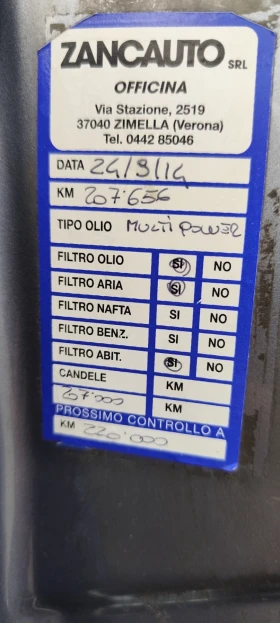 ZANCAUTO SRL
OFFICINA
Via Stazione, 2519
37040 ZIMELLA (Verona)
Tel. 0442 85046
DATA 24/9/14
KM 207.656
TIPO OLIO MULTIPOWER
FILTRO OLIO SI NO
FILTRO ARIA SI NO
FILTRO NAFTA SI NO
FILTRO BENZ. SI NO
FILTRO ABIT. SI NO
CANDELE KM
207.000 KM
PROSSIMO CONTROLLO A
KM 220.000